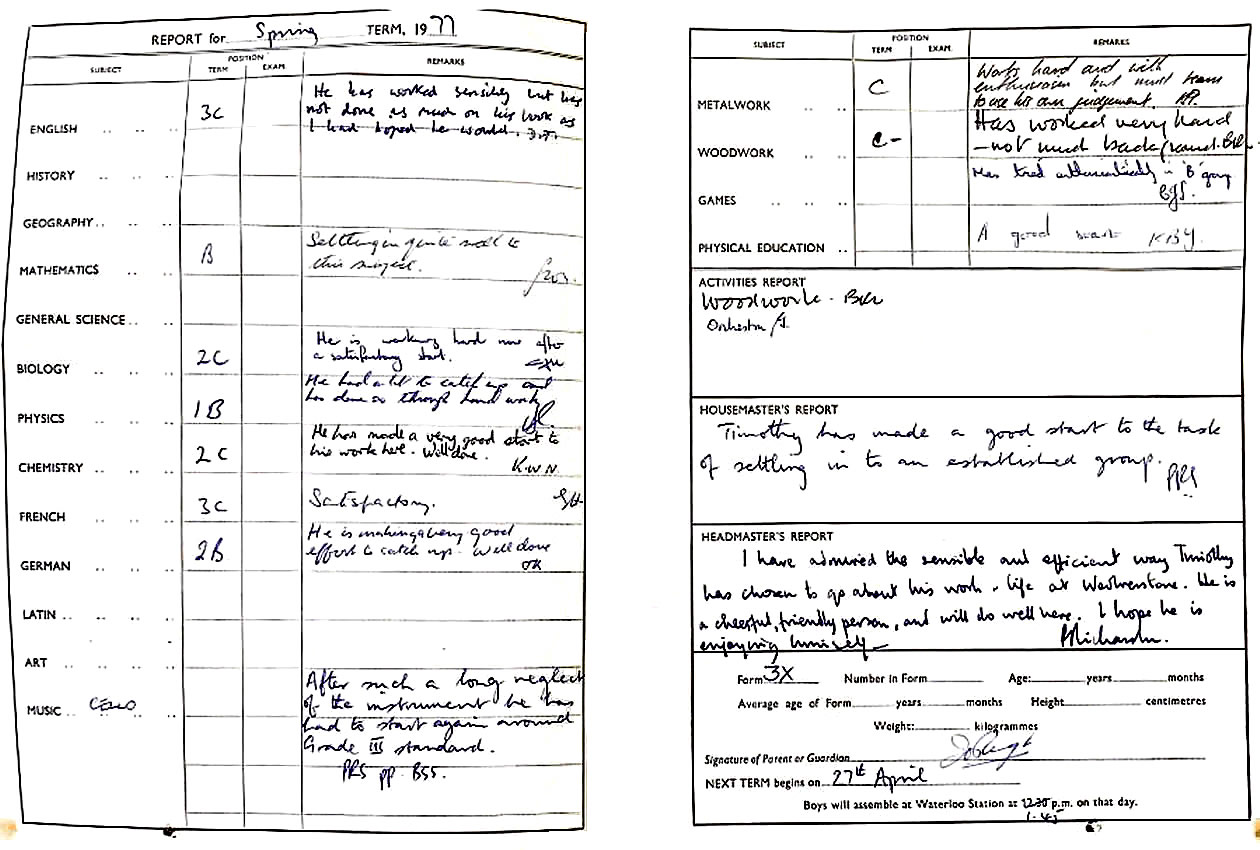 REPORT for Spring TERM, 1977
SUBJECT POSITION REMARKS
TERM EXAM.
ENGLISH 3C He has worked sensibly but has
not done as much on his work as
I had hoped he would.
HISTORY
GEOGRAPHY
MATHEMATICS B Settling in quite well to
this subject.
GENERAL SCIENCE
BIOLOGY 2C He is working hard now after
a satisfactory start.
PHYSICS 1B He had a lot to catch up and
has done so through hard work
CHEMISTRY 2C He has made a very good start to
his work here. Well done.
K.W.N.
FRENCH 3C Satisfactory.
GERMAN 2B He is making a very good
effort to catch up. Well done
OK
LATIN
ART
MUSIC CELLO After such a long neglect
of the instrument he has
had to start again around
Grade III standard.
PRS pp. BSS.
SUBJECT POSITION REMARKS
TERM EXAM.
METALWORK C Works hard and with
enthusiasm but must learn
to use his own judgement.
WOODWORK C- Has worked very hard
- not much background.
GAMES Has tried enthusiastically in 'B' group
PHYSICAL EDUCATION A good start KBY.
ACTIVITIES REPORT
Woodwork.
Orchestra
HOUSEMASTER'S REPORT
Timothy has made a good start to the task
of settling in to an established group.
PRS
HEADMASTER'S REPORT
I have admired the sensible and efficient way Timothy
has chosen to go about his work & life at He is
a cheerful, friendly person, and will do well here. I hope he is
enjoying himself
Form 3X Number in Form Age: years months
Average age of Form years months Height centimetres
Weight: kilogrammes
Signature of Parent or Guardian
NEXT TERM begins on 27th April
Boys will assemble at Waterloo Station at 12.30 p.m. on that day.
1.45